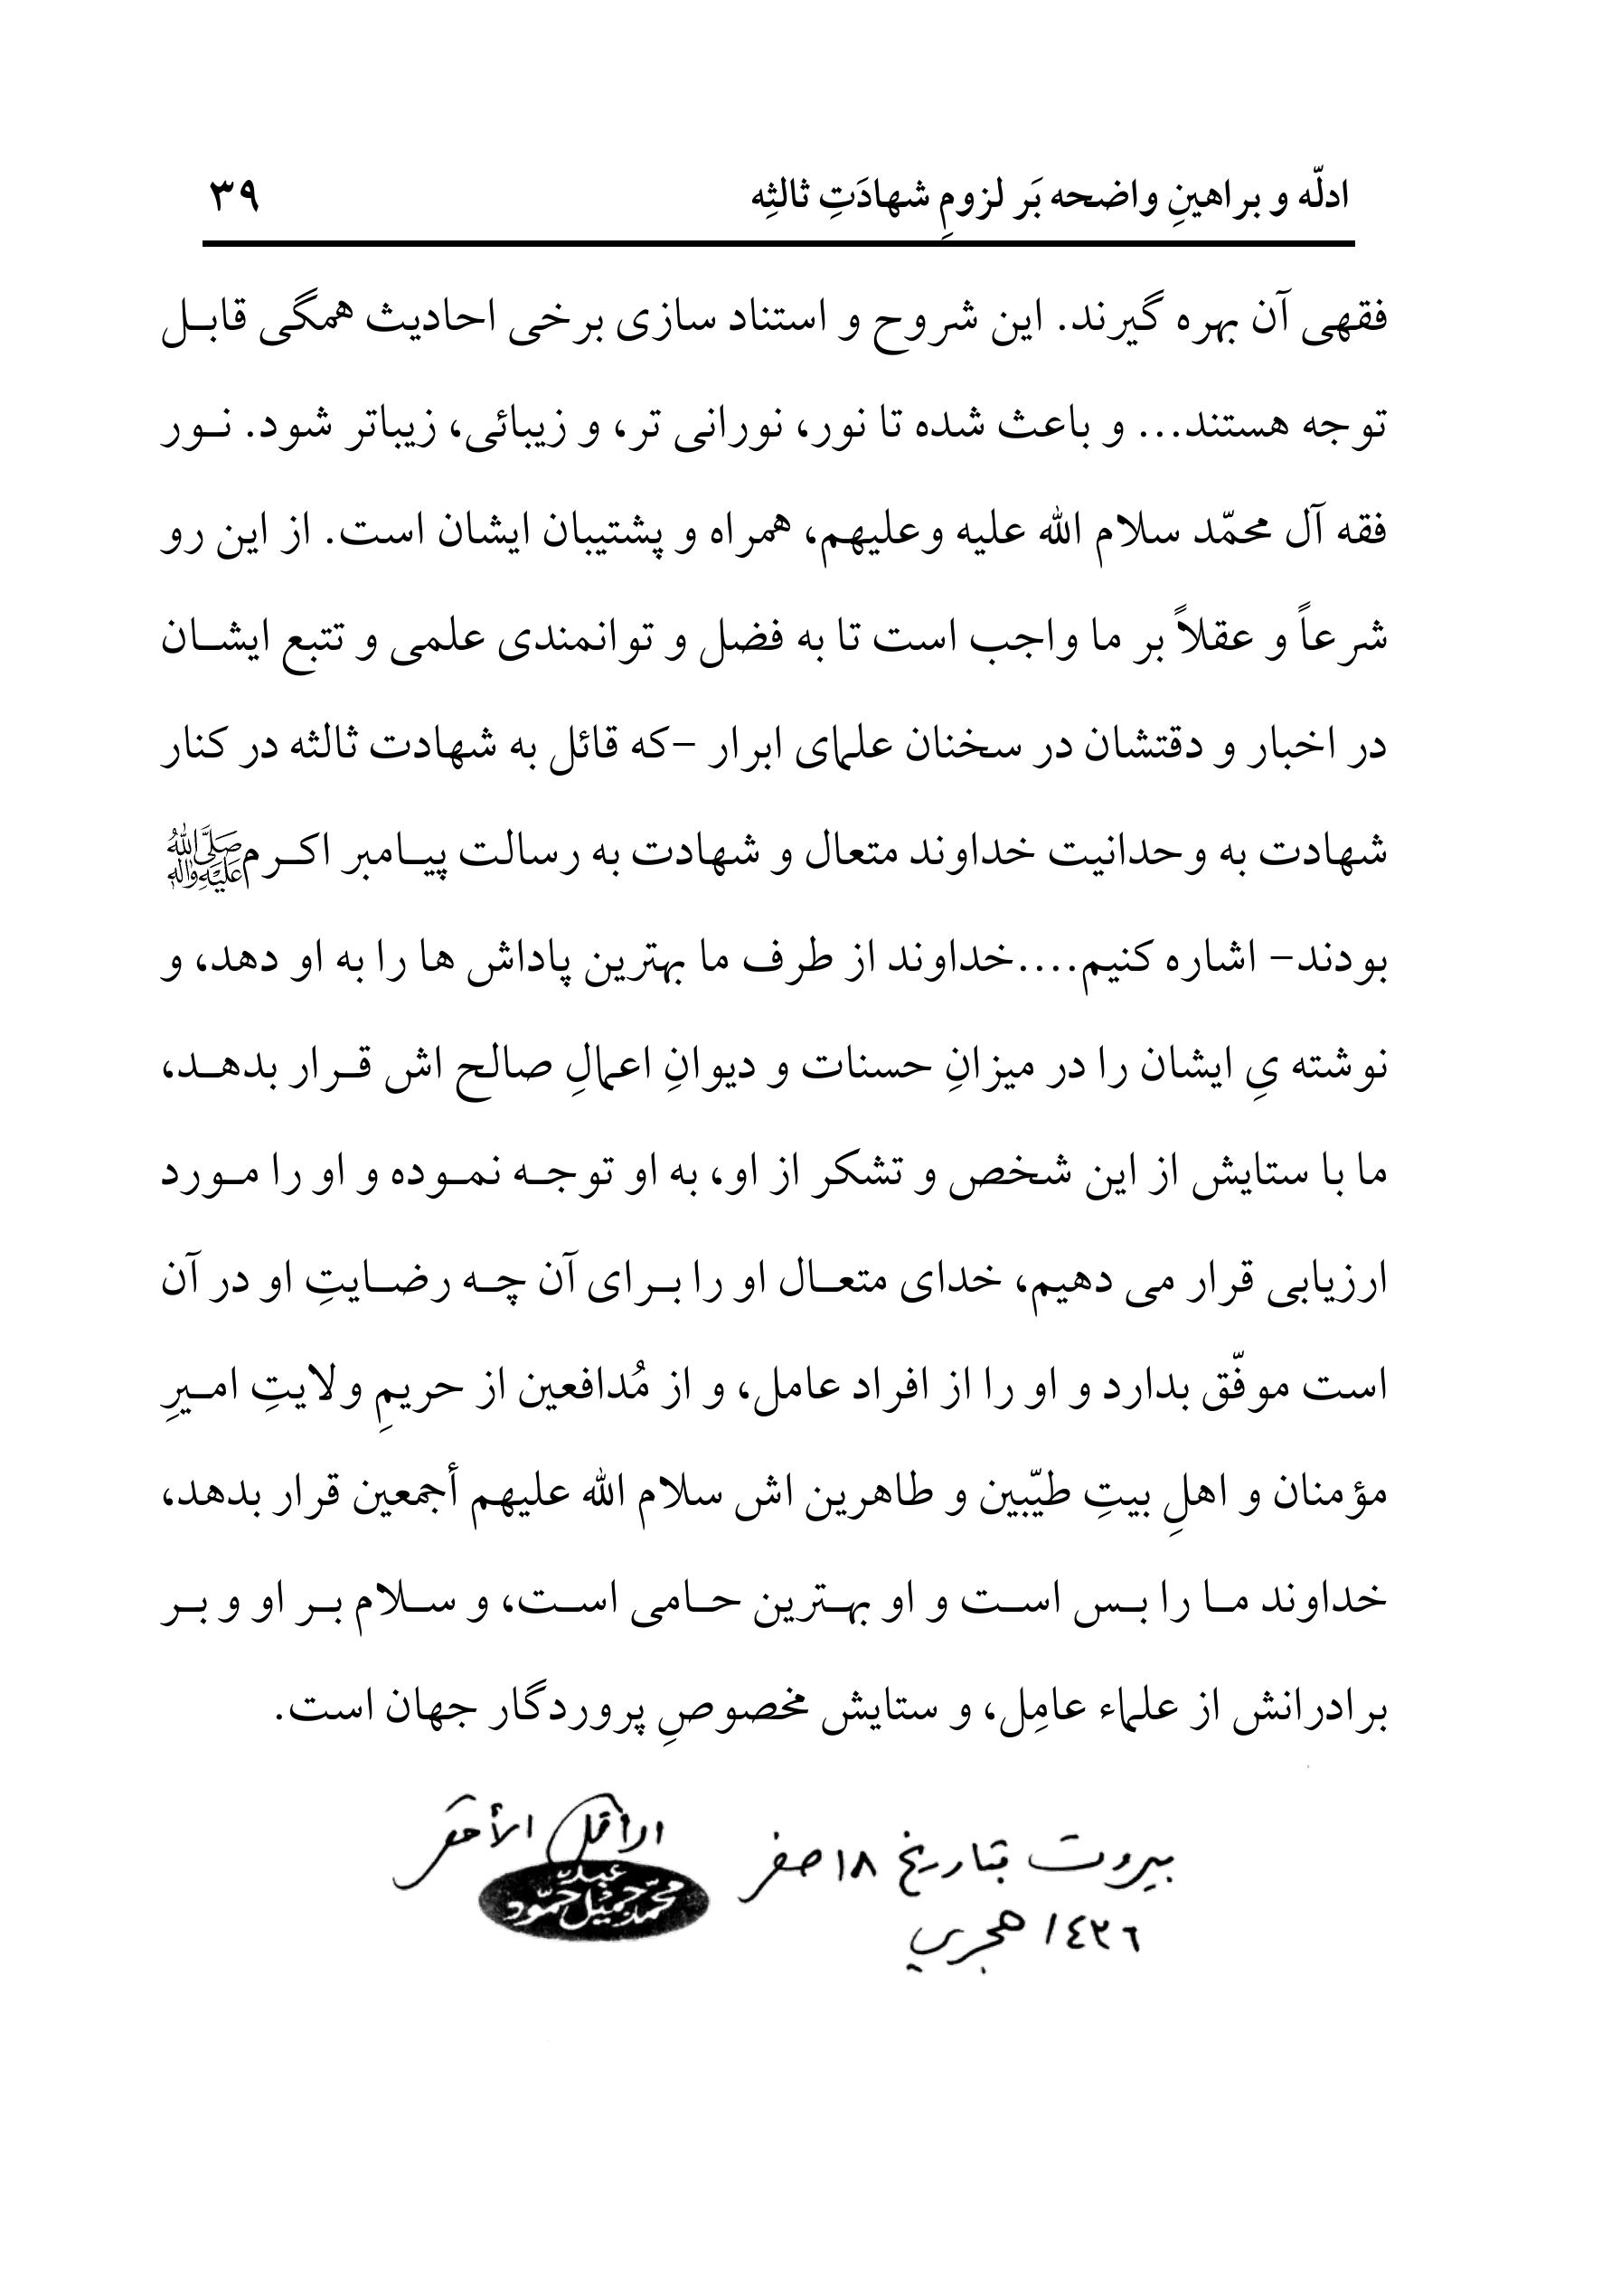 ادلّه و براهینِ واضحه بَر لزومِ شهادَتِ ثالثِه ۳۹
فقهی آن بهره گیرند. این شروح و استناد سازی برخی احادیث همگی قابل
توجه هستند... و باعث شده تا نور، نورانی تر، و زیبائی، زیباتر شود. نور
فقه آل محمّد سلام الله علیه وعلیهم، همراه و پشتیبان ایشان است. از این رو
شرعاً و عقلاً بر ما واجب است تا به فضل و توانمندی علمی و تتبع ایشان
در اخبار و دقتشان در سخنان علمای ابرار –که قائل به شهادت ثالثه در کنار
شهادت به وحدانیت خداوند متعال و شهادت به رسالت پیامبر اکرم صَلَّى اللهُ عَلَيْهِ وَآلِهِ
بودند– اشاره کنیم....خداوند از طرف ما بهترین پاداش ها را به او دهد، و
نوشته یِ ایشان را در میزانِ حسنات و دیوانِ اعمالِ صالح اش قرار بدهد،
ما با ستایش از این شخص و تشکر از او، به او توجه نموده و او را مورد
ارزیابی قرار می دهیم، خدای متعال او را برای آن چه رضایتِ او در آن
است موفّق بدارد و او را از افراد عامل، و از مُدافعین از حریمِ ولایتِ امیرِ
مؤمنان و اهلِ بیتِ طیّبین و طاهرین اش سلام الله علیهم أجمعین قرار بدهد،
خداوند ما را بس است و او بهترین حامی است، و سلام بر او و بر
برادرانش از علماء عامِل، و ستایش مخصوصِ پروردگار جهان است.
بيروت بتاريخ ١٨ صفر الأقل الأحقر
١٤٣٦ هجري
عبده
محمّد جميل حمّود